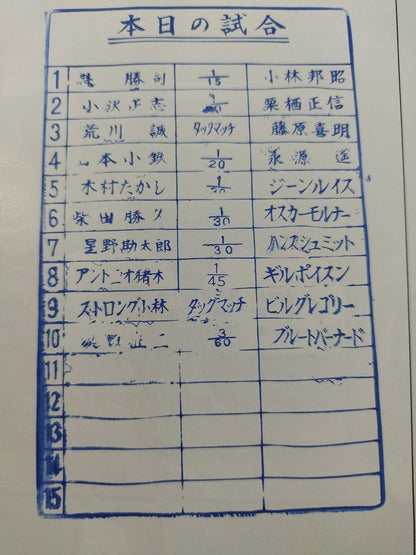 本日の試合
1 勝司 1/15 小林邦昭
2 小沢正志 栗栖正信
3 荒川 誠 タッグマッチ 藤原喜明
4 本小鉄 1/20 永源遙
5 木村たかし 1/20 ジーンルイス
6 柴田勝久 1/30 オスカーモルナー
7 星野勘太郎 1/30 ハンスシュミット
8 アントニオ猪木 1/45 ギルポイスン
9 ストロング小林 タッグマッチ ビルグレゴリー
10 3/60 ブルートバーナード
11
12
13
14
15